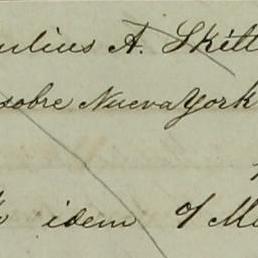 ulius A. Skitt
sobre Nueva York
idem o/ Ma